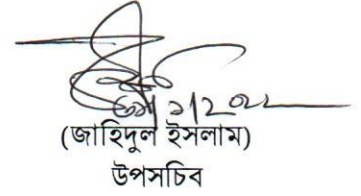 (জাহিদুল ইসলাম)
উপসচিব